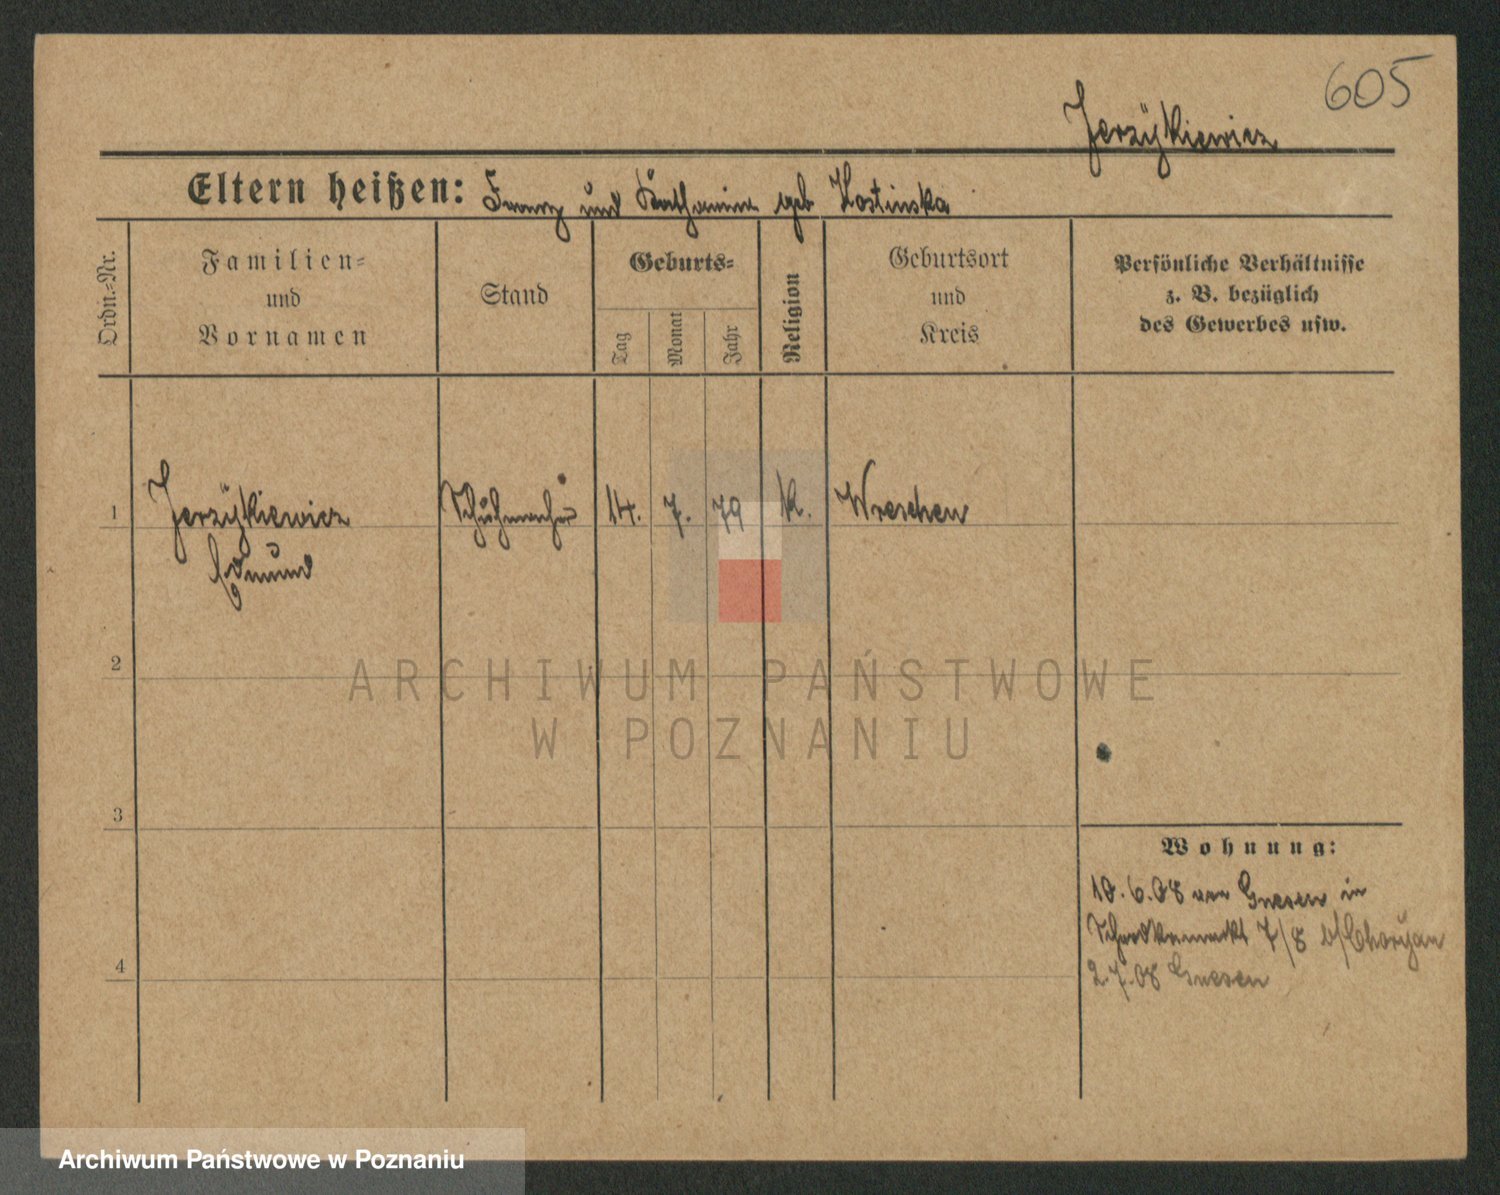 605
Jerzÿkiewicz
Eltern heißen: Franz und Katharina geb Kostinska
Ordn.=Nr.
Familien=
und
Vornamen
Stand
Geburts=
Tag
Monat
Jahr
Religion
Geburtsort
und
Kreis
Persönliche Verhältnisse
z. B. bezüglich
des Gewerbes usw.
1 Jerzÿkiewicz Schuhmacher 14. 7. 79 k. Wreschen
Edmund
2
3
4
ARCHIWUM PAŃSTWOWE
W POZNANIU
Wohnung:
10.6.08 von Gnesen in
7/8 b/
2.7.08 Gnesen
Archiwum Państwowe w Poznaniu